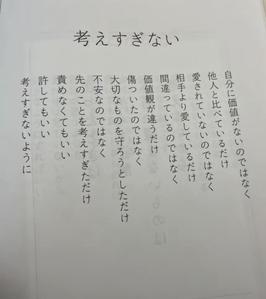 考えすぎない
自分に価値がないのではなく
他人と比べているだけ
愛されていないのではなく
相手より愛しているだけ
間違っているのではなく
価値観が違うだけ
傷ついたのではなく
大切なものを守ろうとしただけ
不安なのではなく
先のことを考えすぎただけ
責めなくてもいい
許してもいい
考えすぎないように